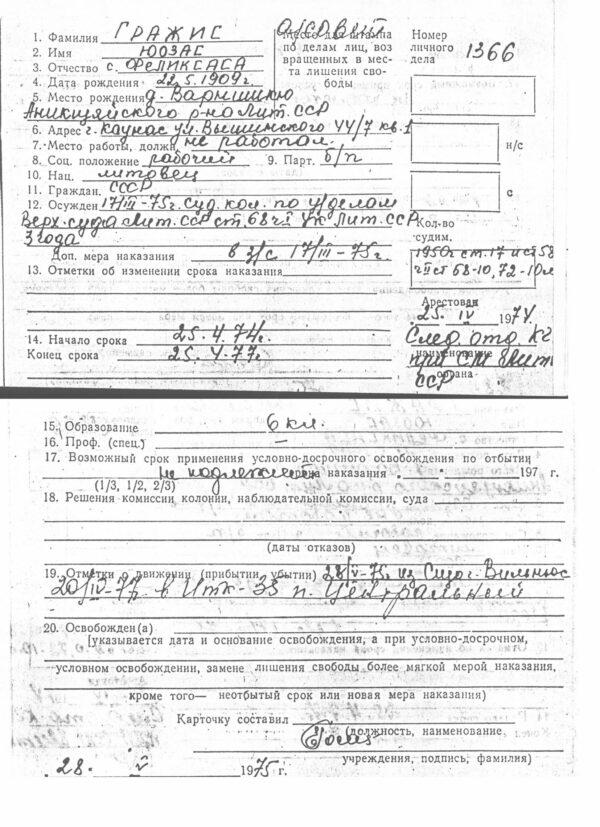 1. Фамилия ГРАЖИС
2. Имя ЮОЗАС
3. Отчество с. ФЕЛИКСАСА
4. Дата рождения 22.5.1909г.
5. Место рождения д. Варишикю
Аникщяйского р-на Лит.ССР
6. Адрес г. Каунас ул. Вышинского 44/7 кв.1
7. Место работы, должн. не работал.
8. Соц. положение рабочий 9. Парт. б/п
10. Нац. литовец
11. Граждан. СССР
12. Осужден 17/III-75г. Суд. кол. по у/делам
Верх. суда Лит.ССР ст. 68 ч I УК Лит. ССР
3 года
Доп. мера наказания в з/с 17/III-75г.
13. Отметки об изменении срока наказания
14. Начало срока 25.4.74г.
Конец срока 25.4.77г.
Место для штампа
по делам лиц, воз
вращенных в мес-
та лишения сво-
боды
Номер
личного
дела 1366
н/с
с
Кол-во
судим.
1950г ст.17 и ст 58
ч II ст 58-10, 72-10л
Арестован
25. IV 1974.
След. отд. КГ
при СМ Лит.
ССР
наименование
органа
15. Образование 6 кл.
16. Проф. (спец.) —
17. Возможный срок применения условно-досрочного освобождения по отбытии
не подлежит срока наказания 197 г.
(1/3, 1/2, 2/3)
18. Решения комиссии колонии, наблюдательной комиссии, суда
(даты отказов)
19. Отметки о движении (прибытии, убытии) 28/V-75г. из Вильнюс
20/IV-77. в ИТК-35 п. Центральный
20. Освобожден(а)
[указывается дата и основание освобождения, а при условно-досрочном,
условном освобождении, замене лишения свободы более мягкой мерой наказания,
кроме того— неотбытый срок или новая мера наказания)
Карточку составил
(должность, наименование,
учреждения, подпись, фамилия)
28. V 1975 г.